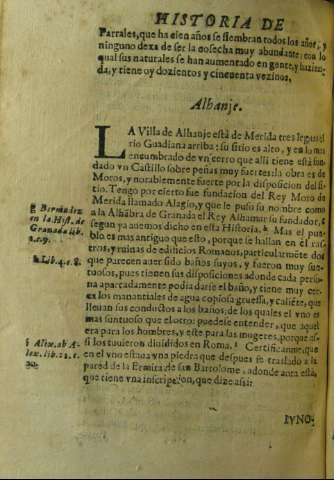 HISTORIA DE
Parrales, que ha cien años se siembran todos los años, y
ninguno dexa de ser la cosecha muy abundante: con lo
qual sus naturales se han aumentado en gente, y hazien-
da, y tiene oy dozientos y cincuenta vezinos.
Alhanje.
LA Villa de Alhanje està de Merida tres leguas
rio Guadiana arriba: su sitio es alto, y en lo mas
encumbrado de vn cerro que alli tiene està fun-
dado vn Castillo sobre peñas muy fuertes: la obra es de
Moros, y notablemente fuerte por la disposicion del si-
tio. Tengo por cierto fue fundacion del Rey Moro de
Merida llamado Alagio, y que le puso su nombre como
a la Alhãbra de Granada el Rey Alhamar su fundador,
segun ya auemos dicho en esta Historia. Mas el pue-
blo es mas antiguo que esto, porque se hallan en èl ras-
tros, y ruinas de edificios Romanos, particularmẽte dos
que parecen auer sido baños suyos, y fueron muy sun-
tuosos, pues tienen sus disposiciones adonde cada perso-
na apartadamente podia darse el baño, y tiene muy cer-
ca los manantiales de agua copiosa gruessa, y caliẽte, que
lleuan sus conductos a los baños: de los quales el vno es
mas suntuoso que el otro: puedese entender, que aquel
era para los hombres, y este para las mugeres, porque as-
si los tuuieron diuididos en Roma. Certificanme, que
en el vno estaua vna piedra que despues se traslado a la
pared de la Ermita de san Bartolome, adonde aora està,
que tiene vna inscripcion, que dize assi:
IVNO-
g Bermudez
en la Hist. de
Granada lib.
1. c. 9.
h Lib. 4. c. 8.
i Alex. ab A-
lex. lib. 22. c.
20.